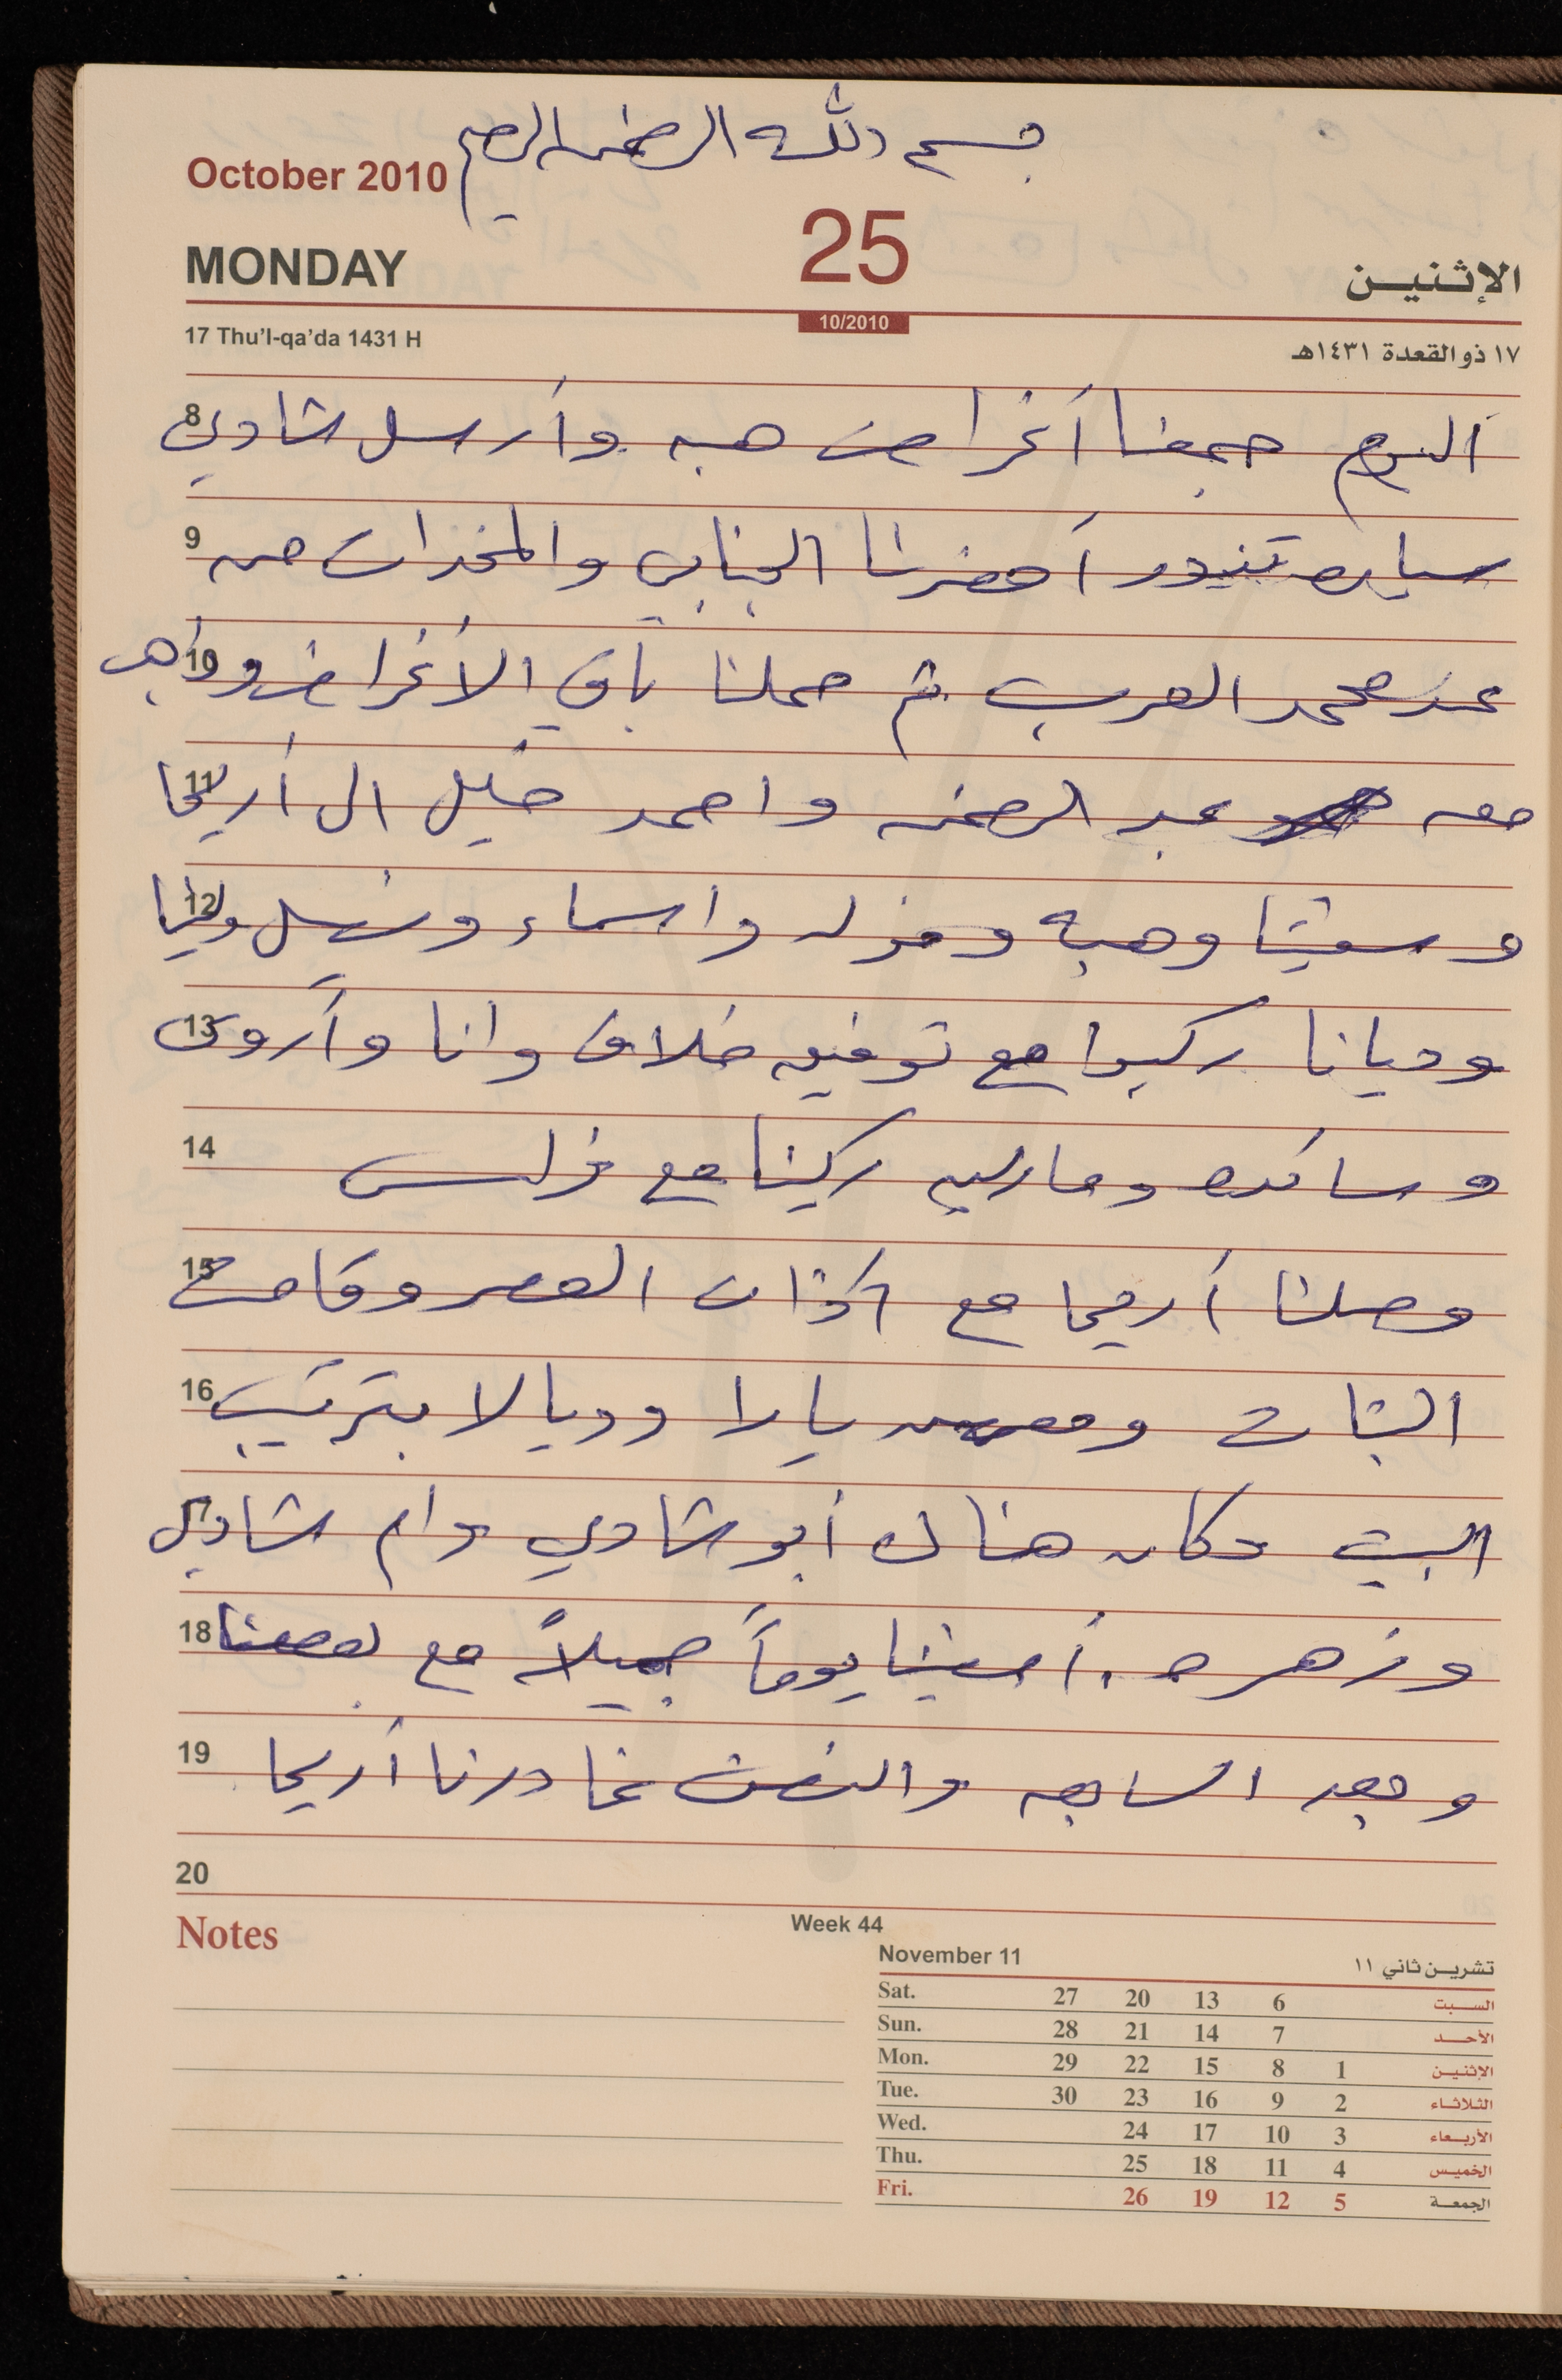 بسم الله الرحمن الرحيم
October 2010
MONDAY 25 الإثنين
17 Thu'l-qa'da 1431 H 10/2010 ١٧ ذو القعدة ١٤٣١هـ
8 اليوم جمعنا أغراض هبه وأرسل شادي
9 سياره تندر أحضرنا الجنابي والمخدات من
10 عند محمد العرب ثم حملنا باقي الأغراض وذهب
11 معه عبد الرحمن واحمد خليل الى أريحا
12 وسقنا وهبه واسماء ولينا
13 وديانا ركبوا مع توفيق خلاف وانا وأروى
14 وسائده ومارلين ركبنا مع
15 وصلنا أريحا مع آذان العصر وقامت
16 البنات ومعهن يارا وديالا بترتيب
17 البيت وكان هناك أبو شادي وام شادي
18 وزهره. أمضينا يوماً جميلاً مع بعضنا
19 وبعد السابعه والنصف غادرنا أريحا
20
Notes
Week 44
November 11 تشرين ثاني ١١
Sat. 27 20 13 6 السبت
Sun. 28 21 14 7 الأحد
Mon. 29 22 15 8 1 الإثنين
Tue. 30 23 16 9 2 الثلاثاء
Wed. 24 17 10 3 الأربعاء
Thu. 25 18 11 4 الخميس
Fri. 26 19 12 5 الجمعة